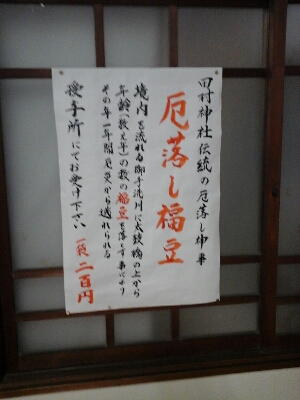 田村神社伝統の厄落し神事
厄落し福豆
境内を流れる御手洗川に太鼓橋の上から
年齢(数え年)の数の福豆を落とす事により
その年一年間厄災から逃れられる
授与所にてお受け下さい 一袋二百円